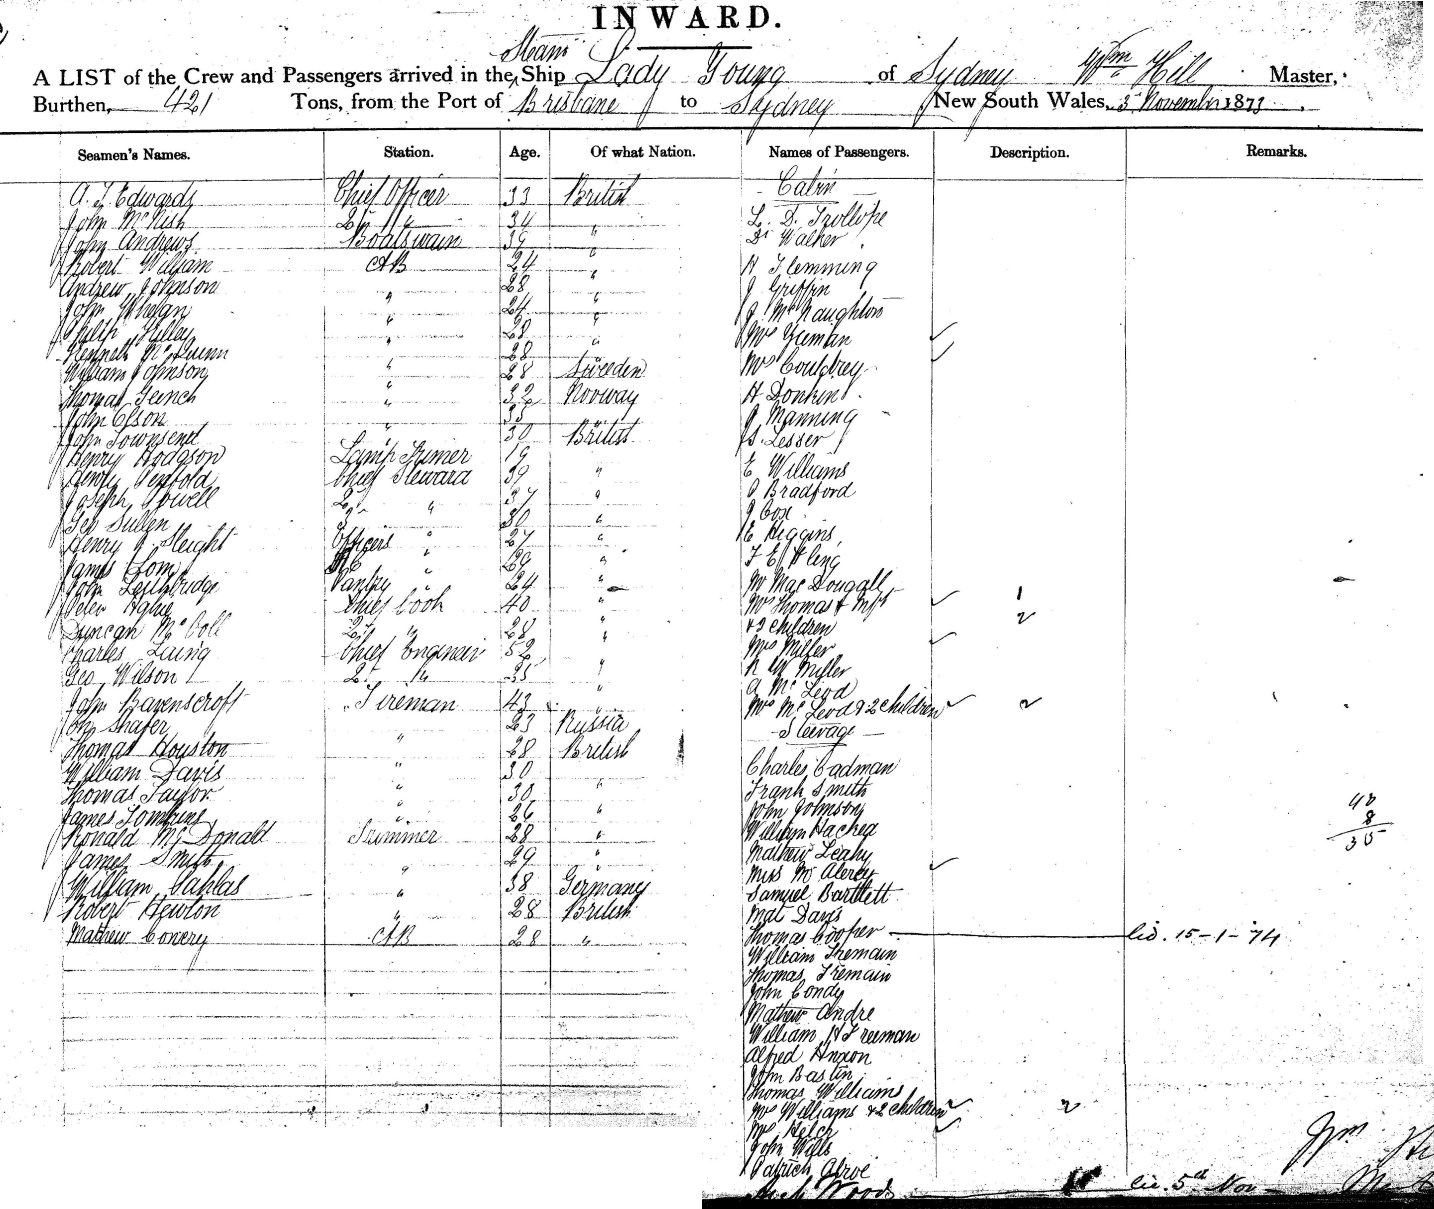 INWARD.
Steam
A LIST of the Crew and Passengers arrived in the Ship Lady Young of Sydney Wm Hill Master,
Burthen, 421 Tons, from the Port of Brisbane to Sydney New South Wales, 3 November 1873
Seamen's Names. Station. Age. Of what Nation.
Edwards Chief Officer 33 British
John McNish 2nd " 34 "
John Andrews Boatswain 39 "
Robert William AB 24 "
Andrew Johnson " 28 "
John Whelan " 24 "
" 28 "
Kenneth McQuinn " 28 "
William Johnson " 28 Sweden
Thomas " 32 Norway
John Olson " 35 "
John Townsend " 30 British
Henry Hodgson Lamp Trimer 19 "
Henry Chief Steward 39 "
Joseph Powell 2nd " 37 "
Geo Sullen 3 " 30 "
Henry J Sleight Officers " 27 "
James Tom " 29 "
John Leithbridge Pantry " 24 "
Peter Chief Cook 40 "
Duncan McColl 2nd " 28 "
Charles Laing Chief Engineer 52 "
Geo Wilson 2nd " 35 "
John Ravenscroft Fireman 43 "
Shafer " 23 Russia
Thomas Houston " 28 British
William Davis " 30 "
Thomas Taylor " 30 "
James Tomkins " 26 "
Ronald McDonald Trimmer 28 "
James Smith " 29 "
William " 38 Germany
Robert Hewton " 28 British
Mathew Conery AB 28 "
Names of Passengers. Description. Remarks.
Cabin
L. D. Trollope
Dr Walker
H Flemming
J Griffin
J McNaughton
Mrs
Mrs
H Donkin
J Manning
S Lesser
E Williams
Bradford
J Cox
E Higgins
F E Kling
Mr MacDougall
Mrs Thomas & Inft 1
& 2 children 2
Mrs Miller
W Miller
A McLeod
Mrs McLeod & 2 children 2
Steerage
Charles Cadman
Frank Smith
John Johnson
William
Mathew Leahy
Miss
Samuel Bartlett
Mat Davis
Thomas Cooper lic. 15-1-74
William Tremain
Thomas Tremain
John Condy
Mathew Andre
William H Freeman
Alfred
John Bastin
Thomas Williams
Mrs Williams & 2 children 2
Mrs
John Wills
Patrick
Woods lic. 5th Nov
8
35
Wm